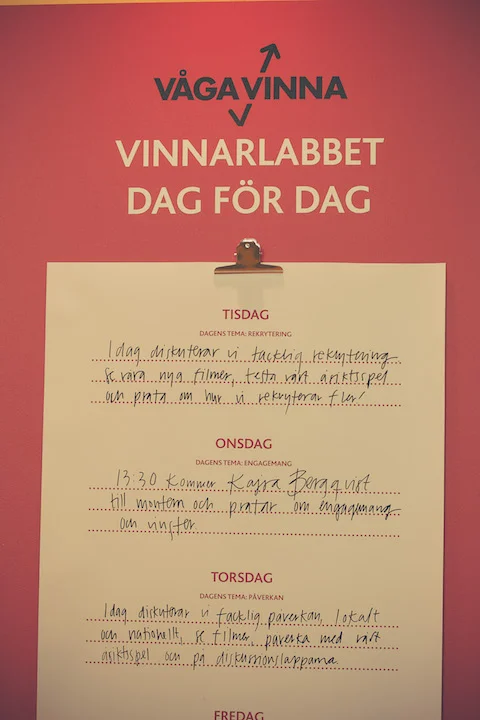 VÅGA VINNA
VINNARLABBET
DAG FÖR DAG
TISDAG
DAGENS TEMA: REKRYTERING
Idag diskuterar vi facklig rekrytering.
Se våra nya filmer, testa vårt åsiktsspel
och prata om hur vi rekryterar fler!
ONSDAG
DAGENS TEMA: ENGAGEMANG
13:30 kommer Kajsa Bergqvist
till montern och pratar om engagemang
och vinster.
TORSDAG
DAGENS TEMA: PÅVERKAN
Idag diskuterar vi facklig påverkan, lokalt
och nationellt, se filmer, påverka med vårt
åsiktsspel och på diskussionslapparna.
FREDAG